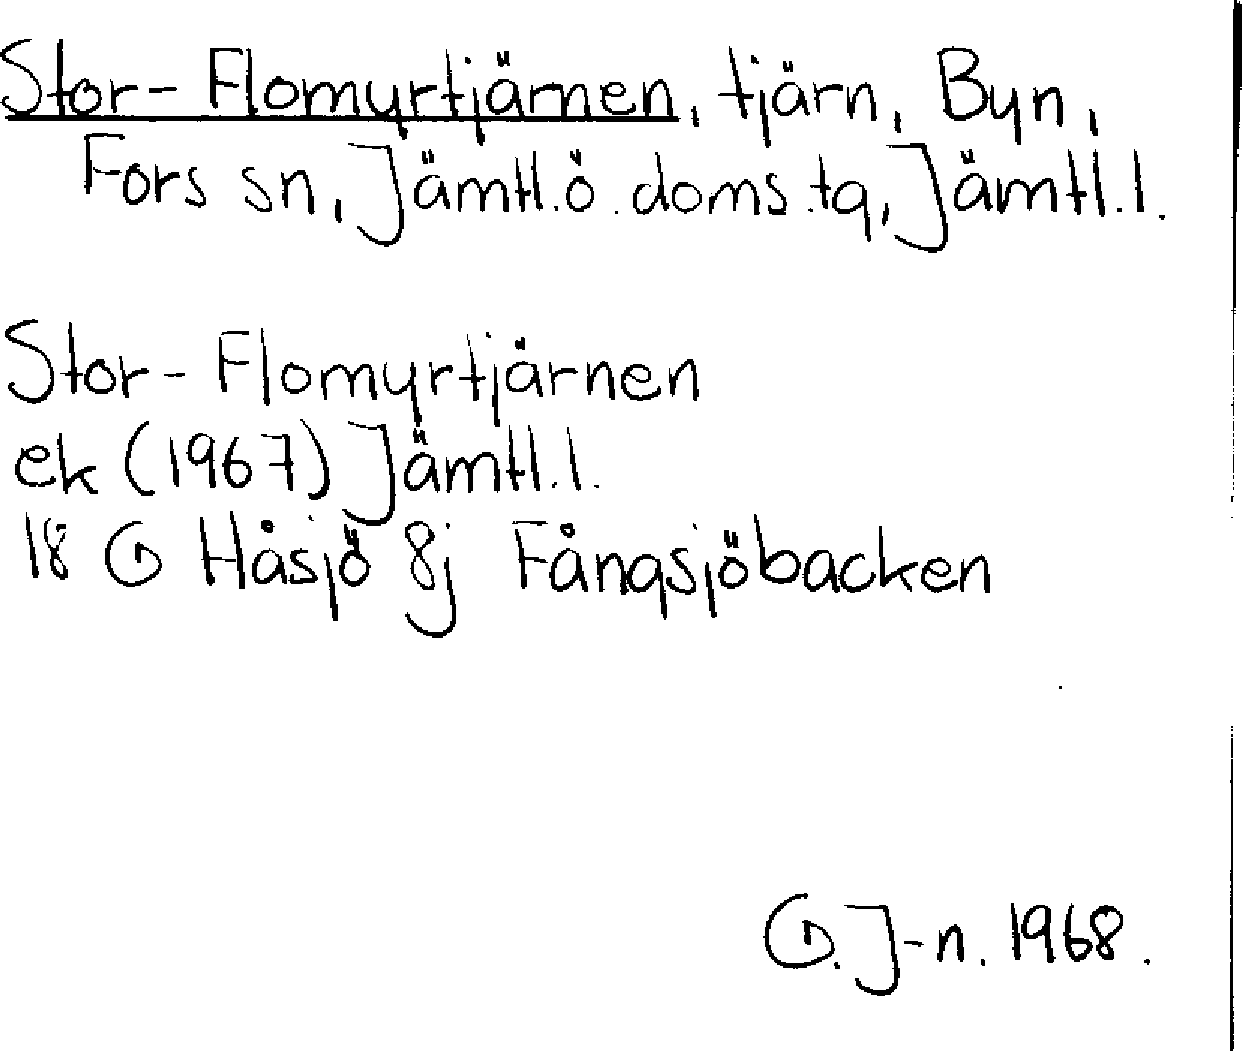 Stor-Flomyrtjärnen, tjärn, Byn,
Fors sn, Jämtl.ö.doms.tg, Jämtl.l.
Stor-Flomyrtjärnen
ek (1967) Jämtl.l.
18 G Håsjö 8j Fångsjöbacken
G.J-n. 1968.